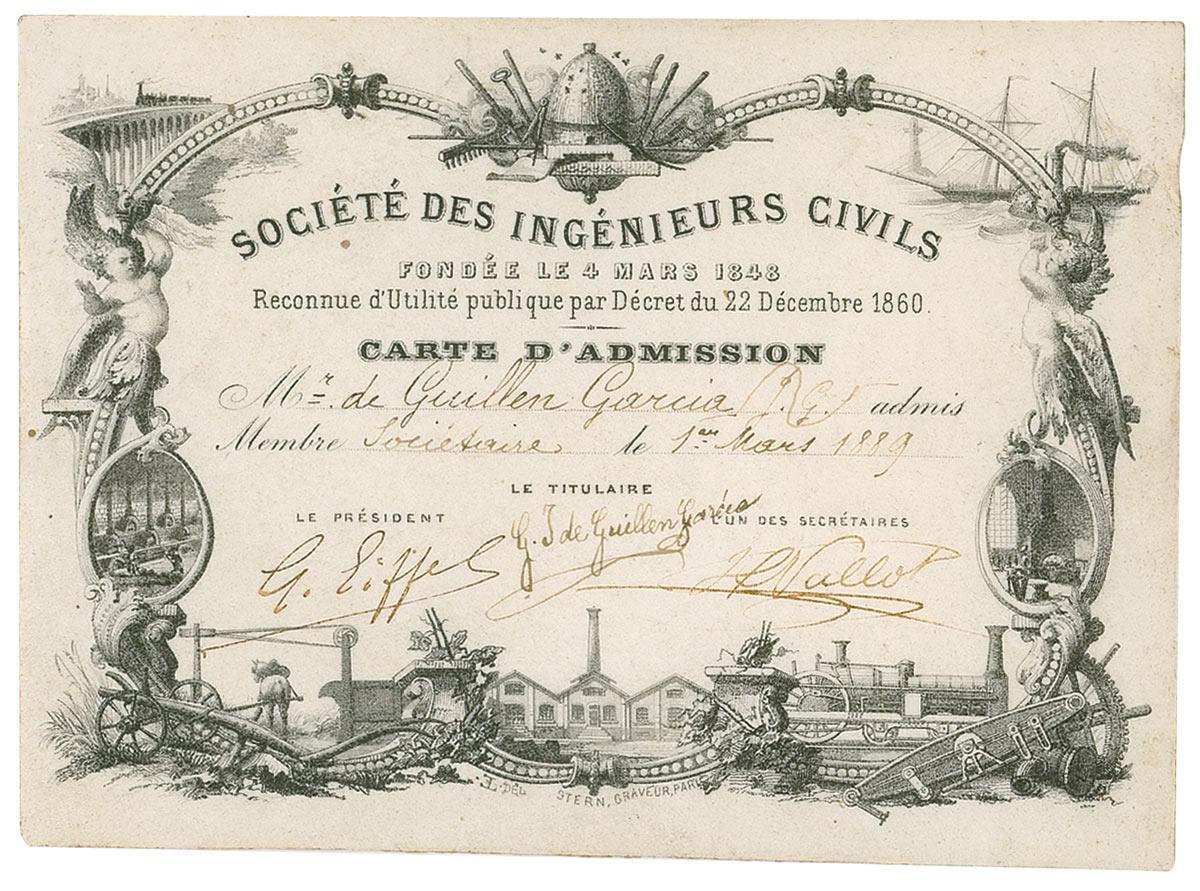 SOCIÉTÉ DES INGÉNIEURS CIVILS
FONDÉE LE 4 MARS 1848
Reconnue d'Utilité publique par Décret du 22 Décembre 1860.
CARTE D'ADMISSION
Mr. de Guillen Garcia (J. G.) admis
Membre Sociétaire le 1er Mars 1889
LE TITULAIRE
LE PRÉSIDENT
L'UN DES SECRÉTAIRES
G. J de Guillen Garcia
G. Eiffel
H Vallot
DEL STERN, GRAVEUR, PARIS